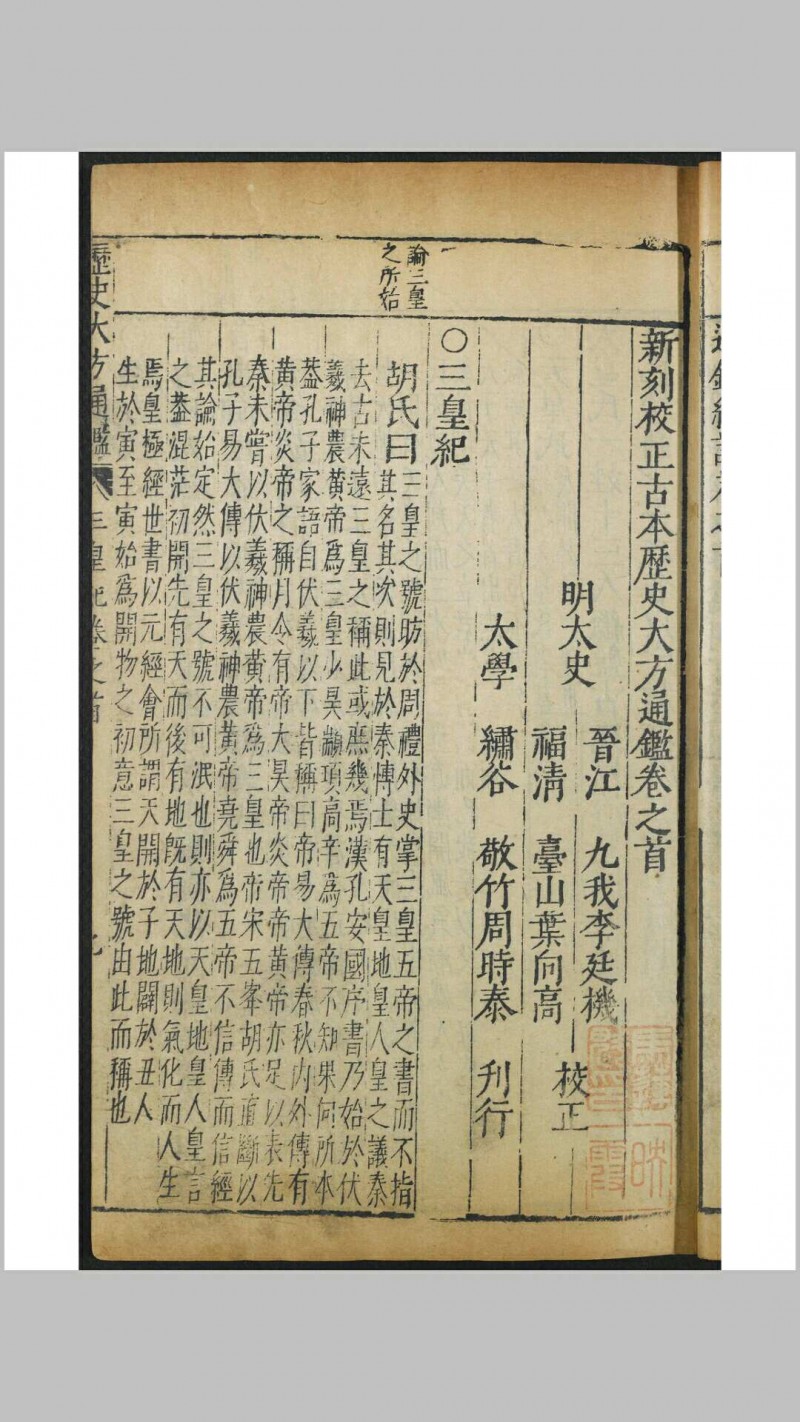 新刻校正古本歷史大方通鑑卷之首
明太史
晉江 九我李廷機
福清 臺山葉向高
校正
太學 繡谷 敬竹周時泰 刋行
論三皇
之所始
○三皇紀
胡氏曰三皇之號昉於周禮外史掌三皇五帝之書而不指
其名其次則見於秦愽士有天皇地皇人皇之議秦
去古未遠三皇之稱此或庶幾焉漢孔安國序書乃始於伏
羲神農黃帝爲三皇少昊顓頊高辛爲五帝不知果何所本
葢孔子家語自伏羲以下皆稱曰帝易大傳春秋內外傳有
黃帝炎帝之稱月令有帝大昊帝炎帝帝黃帝亦足以表先
秦未嘗以伏羲神農黃帝爲三皇也帝宋五峯胡氏直斷以
孔子易大傳以伏羲神農黃帝堯舜爲五帝不信傳而信經
其論始定然三皇之號不可泯也則亦以天皇地皇人皇言
之葢混茫初開先有天而後有地旣有天地則氣化而人生
焉皇極經世書以元經會所謂天開於子地闢於丑人
生於寅至寅始爲開物之初意三皇之號由此而稱也
歷史大方通鑑 三皇紀卷之首